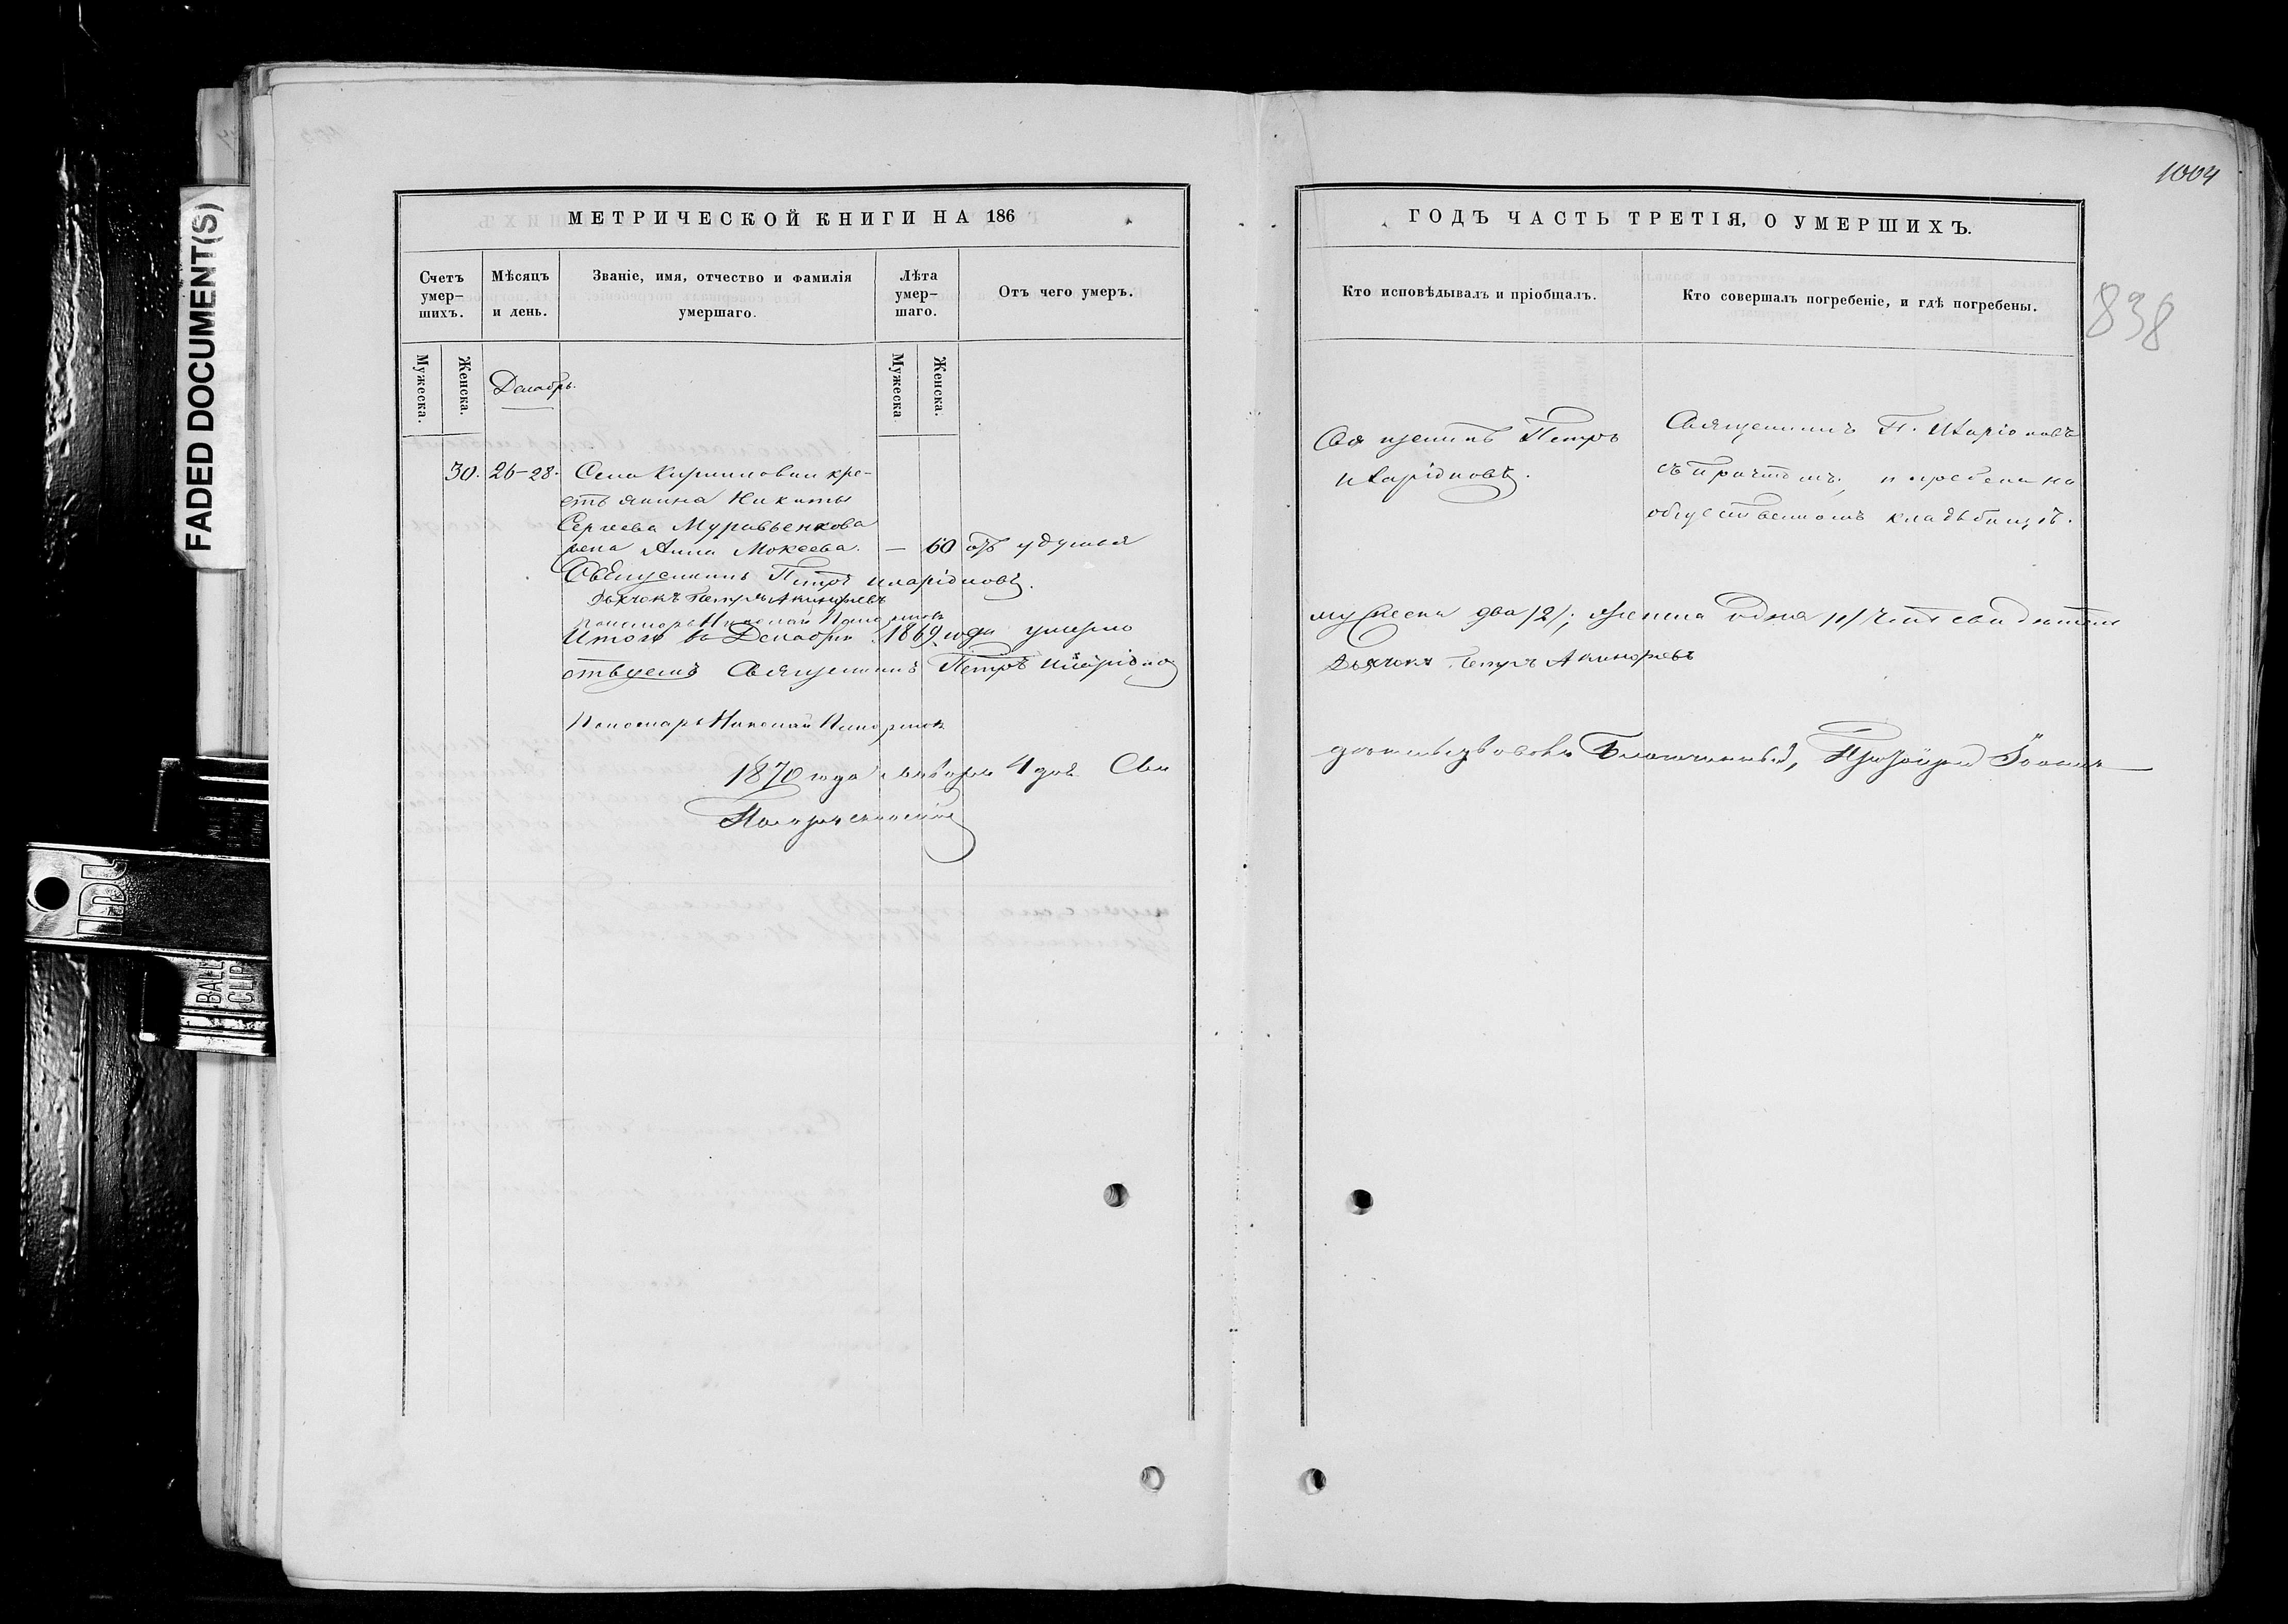 1004
838
FADED DOCUMENT(S)
BALL
CLIP
МЕТРИЧЕСКОЙ КНИГИ НА 186
Счетъ умер-шихъ.
Мѣсяцъ и день.
Званіе, имя, отчество и фамилія умершаго.
Лѣта умер-шаго.
Отъ чего умеръ.
Мужеска.
Женска.
Мужеска
Женска.
Декабрь.
30. 26-28. Села Кирилловки кре-
стьянина Никиты
Сергеева Муравьенкова
жена Анна Мокеева. — 60 отъ удушья
Священникъ Петръ Иларіоновъ.
Дьячокъ Петръ
пономарь Николай
Итого въ Декабрѣ 1869 года умерло
Священникъ Петръ Иларіонов
Пономарь Николай
1870 года Января 4 дня
ГОДЪ ЧАСТЬ ТРЕТІЯ, О УМЕРШИХЪ.
Кто исповѣдывалъ и пріобщалъ.
Кто совершалъ погребеніе, и гдѣ погребены.
Священникъ Петръ
Иларіоновъ.
Священникъ П. Иларіоновъ
съ причтомъ, на
общественномъ кладбищѣ.
мужеска два /2/, женска одна
Дьячокъ Петръ
Благочинный,